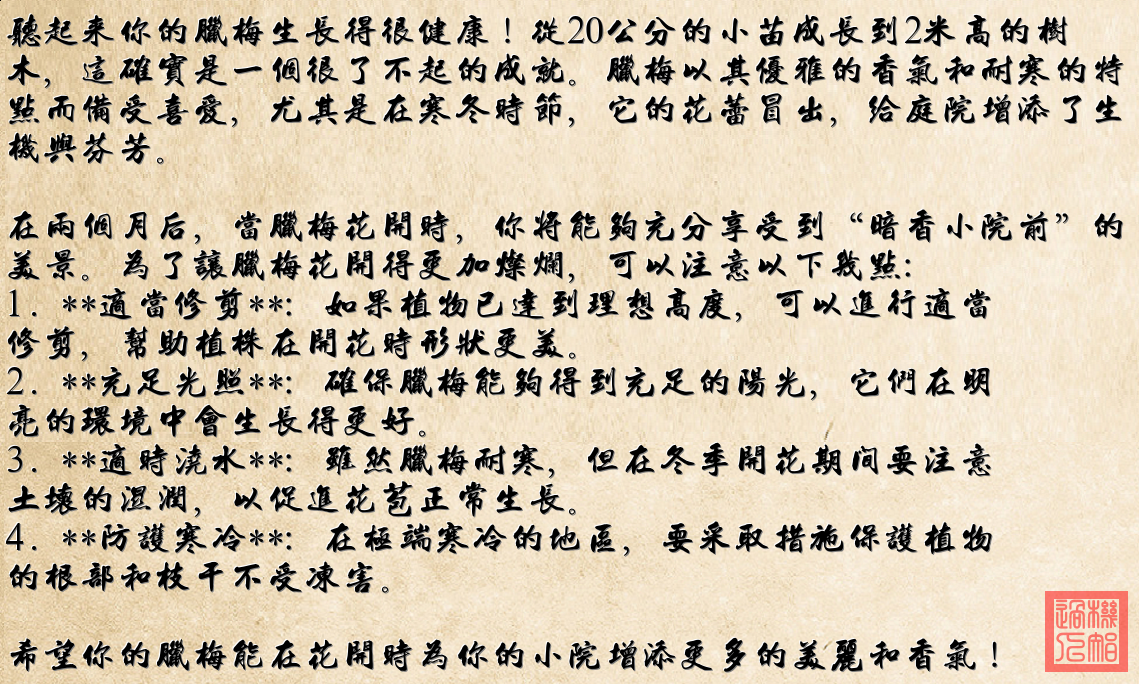 聽起来你的臘梅生長得很健康！從20公分的小苗成長到2米高的樹
木，這確實是一個很了不起的成就。臘梅以其優雅的香氣和耐寒的特
點而備受喜愛，尤其是在寒冬時節，它的花蕾冒出，給庭院增添了生
機與芬芳。
在兩個月后，當臘梅花開時，你將能夠充分享受到“暗香小院前”的
美景。為了讓臘梅花開得更加燦爛，可以注意以下幾點：
1. **適當修剪**：如果植物已達到理想高度，可以進行適當
修剪，幫助植株在開花時形狀更美。
2. **充足光照**：確保臘梅能夠得到充足的陽光，它們在明
亮的環境中會生長得更好。
3. **適時澆水**：雖然臘梅耐寒，但在冬季開花期间要注意
土壤的濕潤，以促進花苞正常生長。
4. **防護寒冷**：在極端寒冷的地區，要采取措施保護植物
的根部和枝干不受凍害。
希望你的臘梅能在花開時為你的小院增添更多的美麗和香氣！